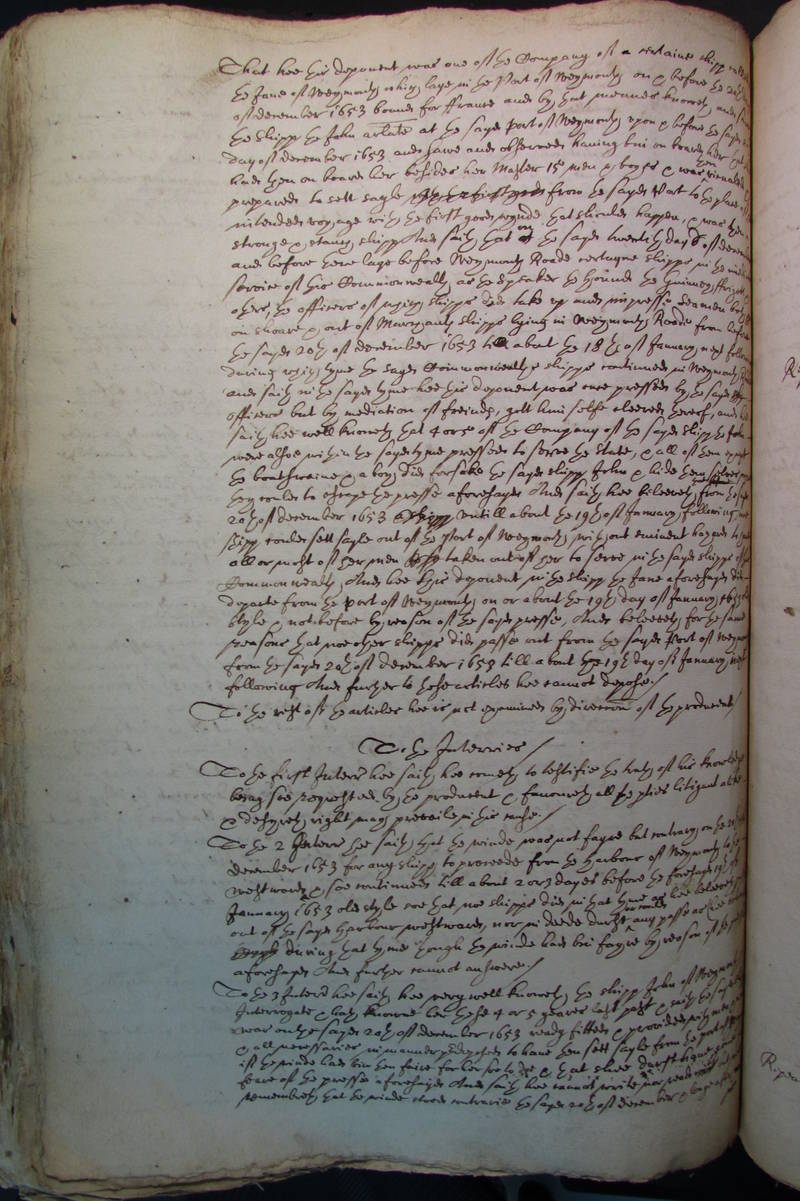 That hee this deponent was one of the Company of a certaine shipp
the Jane of Weymouth which laye in the Port of Weymouth on & before the 20th
of december 1653 bound for ffrance and by that meanes knoweth and
the shipp the John arlate at the sayd Port of Weymouth upon & before the sayd
day of december 1653 and sawe and observed having bin on board her that
had then on board her besides her Master 15 men & boyes & was then victualed
prepared to sett sayle from the sayd Port to the place
intended voyage with the first good wynde that should happen, & was then
stronge & stanch shipp And saith that on the sayd twentyth day of december
and before there laye before Weymouth Roade certayne shipps in the
service of this Commonwealth as the Speaker the Hound the Guinney ffrigot
others, the officers of which shipps did take up and impresse Seamen both
on shoare & out of Marchants shipps lying in Weymouth Roade from
the sayd 20th of december 1653 till about the 18th of January next
during which tyme the sayd Commonwealths shipps continued in Weymouth
and saith in the sayd tyme hee this deponent was once pressed by the sayd
officers but by mediation of freinds, gott himselfe cleered thereof, and
saith hee well knoweth that 4 or 5 of the Company of the sayd shipp the John
were alsoe within the sayd tyme pressed to serve the State, & all of them except
the boatswaine & a boy did forsake the sayd shipp John & hide themselves
they could to escape the presse aforesayd And saith hee beleeveth from the sayd
20th of december 1653 untill about the 19th of January following
shipp could sett sayle out of the Port of Weymouth without eminent hazard to
all or most of her men taken out of her to serve in the sayd shipps of
Commonwealth, And hee this deponent in the shipp the Jane aforesayd did
departe from the Port of Weymouth on or about the 19th day of January
style & not before by reason of the sayd presse, And beleeveth for the same
reasons that noe other shipps did passe out from the sayd Port of
from the sayd 20th of december 1653 till about the 19th day of January
following And further to these articles hee cannot depose./
To the rest of the articles hee is not examined by direction of the producent/
To the Interries/
To the first Interr hee saith hee cometh to testifie the truth of his knowledge
being soe requested by the producent & favoureth all the parties litigant alike
& desyreth right may prevaile in this cause./
To the 2 Interr hee saith that the winde was not fayre but contrary on the
december 1653 for any shipp to proceede from the Harbour of Weymouth to the
westward & soe continued till about 2 or 3 dayes before the foresayd 19th of
January 1653 old style soe that noe shipps did in that tyme as hee beleeveth
out of the sayd harbour westward, nor indeede durst any passe
during that tyme though the winde had bin fayre by reason of the
aforesayd And further cannot answere./
To the 3 Interr hee saith hee very well knoweth the shipp John of Weymouth
Interrogate & hath knowne her these 4 or 5 yeares last past & saith the sayd
was on the sayd 20th of december 1653 ready fitted & provided with
& all necessaries in manner predeposed to have then sett sayle from the Port of
if the winde had bin then faire for her soe to doe & that shee durst
feare of the presse aforesayd And saith hee cannot write nor reade
remembreth that the winde stood contrarie the sayd 20th of december